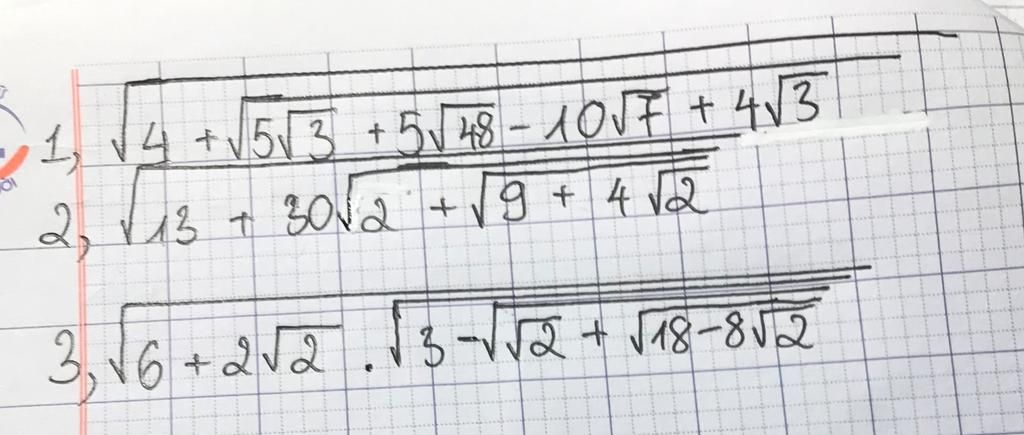 1, √(4 + √(5√3 + 5√48 - 10√7 + 4√3))
2, √(13 + 30√(2 + √(9 + 4√2)))
3, √(6 + 2√2 . √(3 - √(√2 + √(18 - 8√2))))